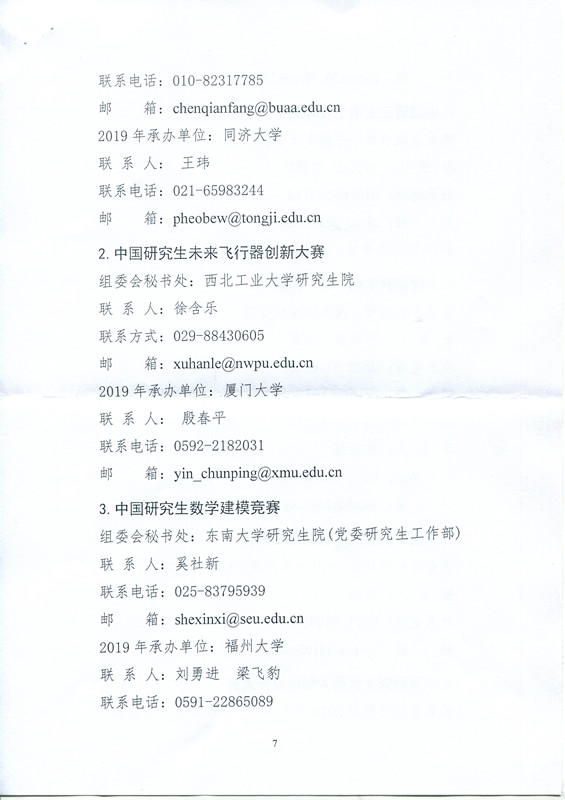 联系电话：010-82317785
邮　　箱：chenqianfang@buaa.edu.cn
2019 年承办单位：同济大学
联 系 人： 王玮
联系电话：021-65983244
邮　　箱：pheobew@tongji.edu.cn
2.中国研究生未来飞行器创新大赛
组委会秘书处：西北工业大学研究生院
联 系 人：徐含乐
联系方式：029-88430605
邮　　箱：xuhanle@nwpu.edu.cn
2019 年承办单位：厦门大学
联 系 人： 殷春平
联系电话：0592-2182031
邮　　箱：yin_chunping@xmu.edu.cn
3.中国研究生数学建模竞赛
组委会秘书处：东南大学研究生院(党委研究生工作部)
联 系 人：奚社新
联系电话：025-83795939
邮　　箱：shexinxi@seu.edu.cn
2019 年承办单位：福州大学
联 系 人：刘勇进　梁飞豹
联系电话：0591-22865089
7